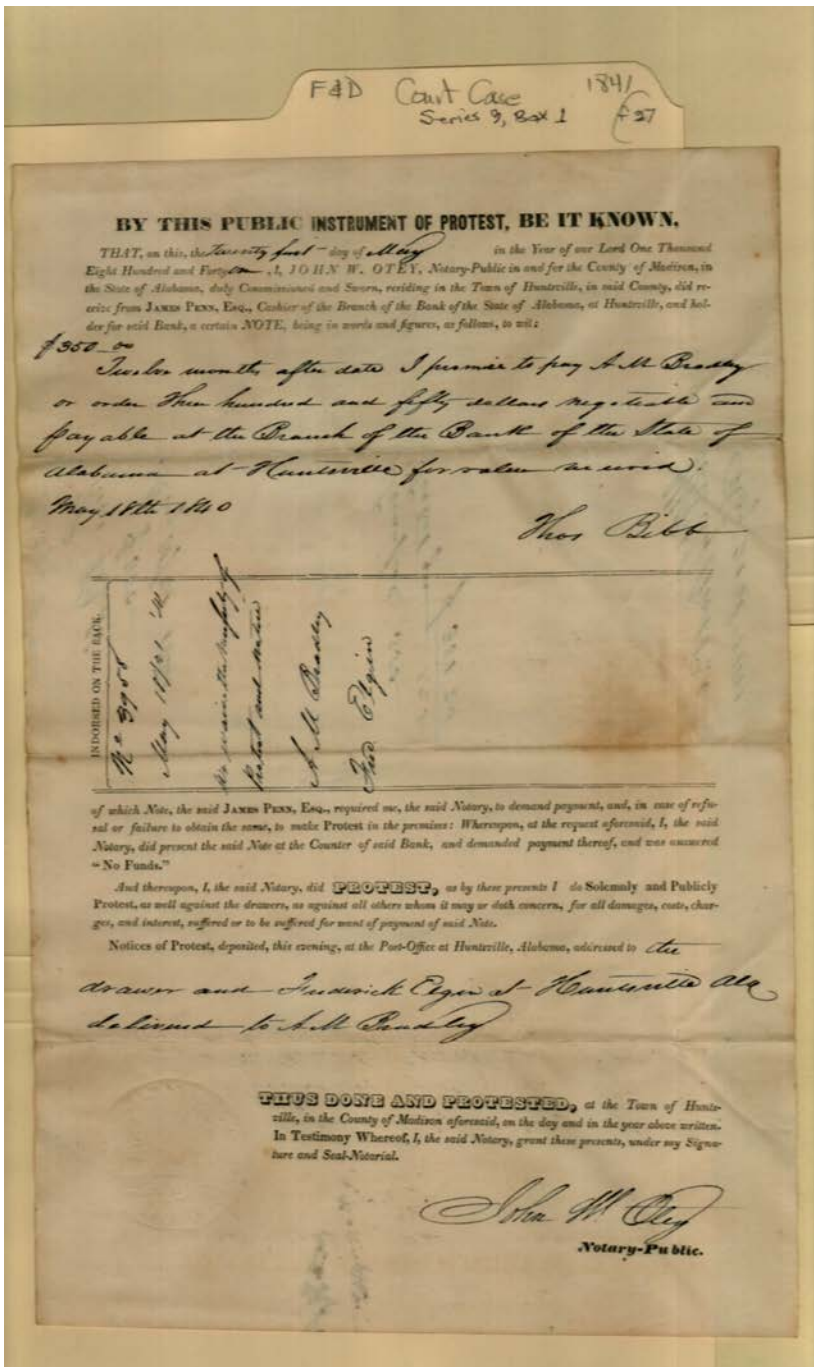 F&D Court Case 1841
Series 9, Box 1 f27
BY THIS PUBLIC INSTRUMENT OF PROTEST, BE IT KNOWN,
THAT, on this, the twenty first day of May in the Year of our Lord One Thousand
Eight Hundred and Forty one, I, JOHN W. OTEY, Notary-Public in and for the County of Madison, in
the State of Alabama, duly Commissioned and Sworn, residing in the Town of Huntsville, in said County, did re-
ceive from JAMES PENN, ESQ., Cashier of the Branch of the Bank of the State of Alabama, at Huntsville, and hol-
der for said Bank, a certain NOTE, being in words and figures, as follows, to wit:
$350-00
Twelve months after date I promise to pay A M Bradley
or order Three hundred and fifty dollars negotiable and
payable at the Branch of the Bank of the State of
Alabama at Huntsville for value received.
May 18th 1840
Thos Bibb
INDORSED ON THE BACK.
No 3958
May 18/21 '41
We waive the necessity of
Protest and notice
A M Bradley
Fred Elgin
of which Note, the said JAMES PENN, ESQ., required me, the said Notary, to demand payment, and, in case of refu-
sal or failure to obtain the same, to make Protest in the premises: Whereupon, at the request aforesaid, I, the said
Notary, did present the said Note at the Counter of said Bank, and demanded payment thereof, and was answered
"No Funds."
And thereupon, I, the said Notary, did PROTEST, as by these presents I do Solemnly and Publicly
Protest, as well against the drawers, as against all others whom it may or doth concern, for all damages, costs, char-
ges, and interest, suffered or to be suffered for want of payment of said Note.
Notices of Protest, deposited, this evening, at the Post-Office at Huntsville, Alabama, addressed to the
drawer and Frederick Elgin at Huntsville Ala
delivered to A M Bradley
THUS DONE AND PROTESTED, at the Town of Hunts-
ville, in the County of Madison aforesaid, on the day and in the year above written.
In Testimony Whereof, I, the said Notary, grant these presents, under my Signa-
ture and Seal-Notarial.
John W. Otey
Notary-Public.